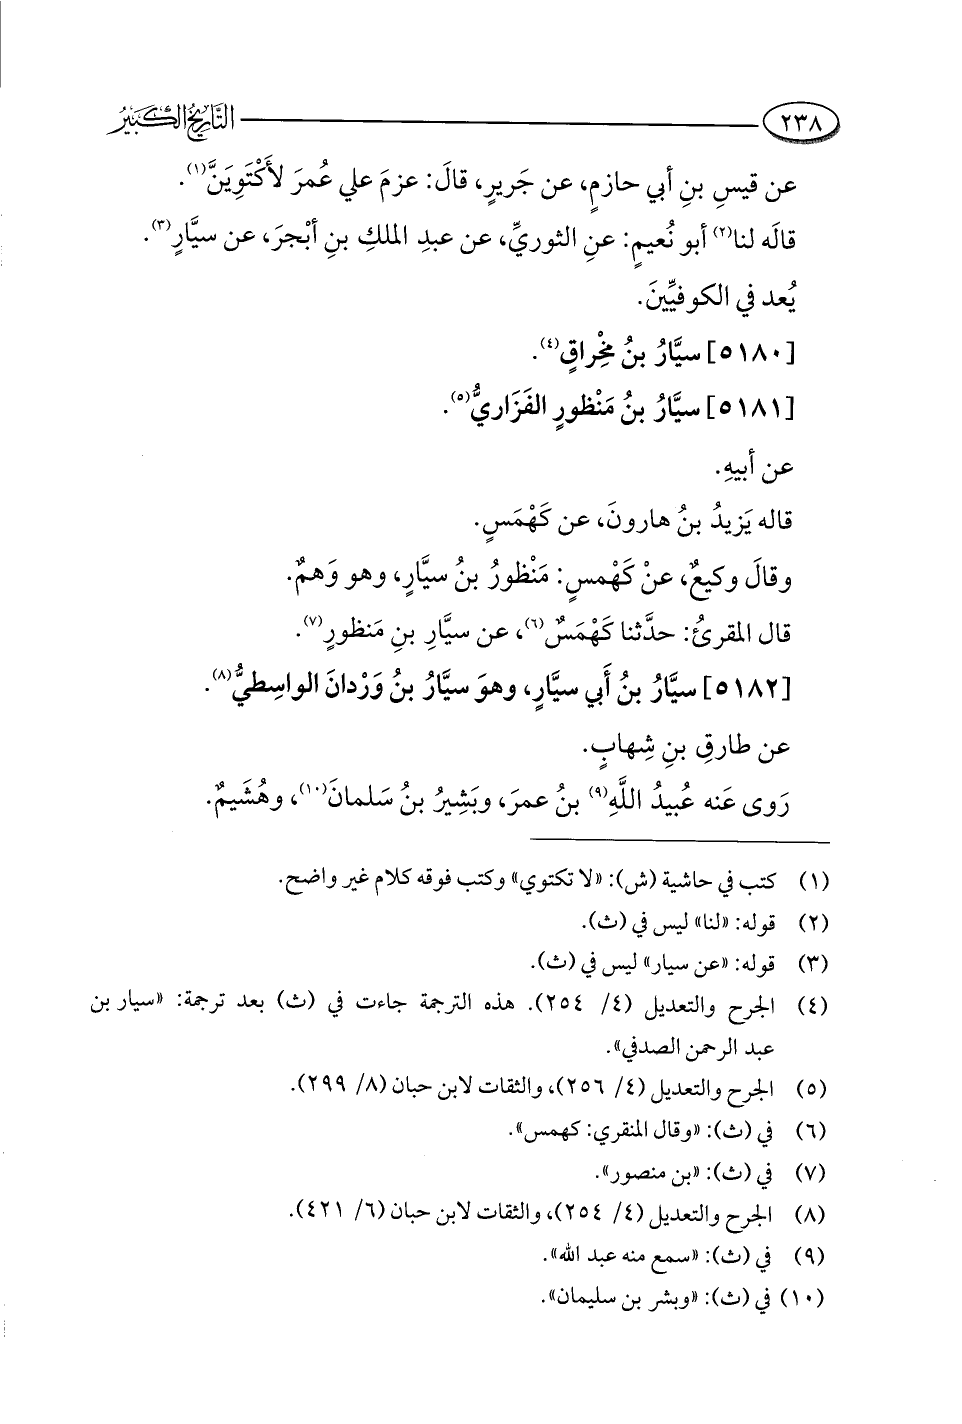 ٢٣٨
التاريخ الكبير
عن قيسِ بنِ أبي حازمٍ، عن جَريرٍ، قالَ: عزمَ علي عُمرَ لأَكْتَوِيَنَّ(١).
قالَه لنا(٢) أبو نُعيمٍ: عنِ الثوريِّ، عن عبدِ الملكِ بنِ أبْجرَ، عن سيَّارٍ(٣).
يُعد في الكوفيِّينَ.
[٥١٨٠] سيَّارُ بنُ مِخْراقٍ(٤).
[٥١٨١] سيَّارُ بنُ مَنْظورٍ الفَزَاريُّ(٥).
عن أبيهِ.
قاله يَزيدُ بنُ هارونَ، عن كَهْمَسٍ.
وقالَ وكيعٌ، عنْ كَهْمسٍ: مَنْظورُ بنُ سيَّارٍ، وهو وَهمٌ.
قال المقرئُ: حدَّثنا كَهْمَسٌ(٦)، عن سيَّارِ بنِ مَنظورٍ(٧).
[٥١٨٢] سيَّارُ بنُ أَبي سيَّارٍ، وهوَ سيَّارُ بنُ وَرْدانَ الواسِطيُّ(٨).
عن طارقِ بنِ شِهابٍ.
رَوى عَنه عُبيدُ اللَّهِ(٩) بنُ عمرَ، وبَشِيرُ بنُ سَلمانَ(١٠)، وهُشَيمٌ.
(١) كتب في حاشية (ش): «لا تكتوي» وكتب فوقه كلام غير واضح.
(٢) قوله: «لنا» ليس في (ث).
(٣) قوله: «عن سيار» ليس في (ث).
(٤) الجرح والتعديل (٤/ ٢٥٤). هذه الترجمة جاءت في (ث) بعد ترجمة: «سيار بن
عبد الرحمن الصدفي».
(٥) الجرح والتعديل (٤/ ٢٥٦)، والثقات لابن حبان (٨/ ٢٩٩).
(٦) في (ث): «وقال المنقري: كهمس».
(٧) في (ث): «بن منصور».
(٨) الجرح والتعديل (٤/ ٢٥٤)، والثقات لابن حبان (٦/ ٤٢١).
(٩) في (ث): «سمع منه عبد الله».
(١٠) في (ث): «وبشر بن سليمان».